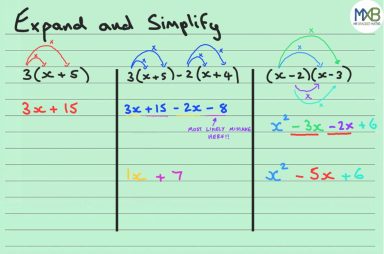 Expand and Simplify
MXB
3(x + 5)
3x + 15
3(x+5) - 2(x+4)
3x + 15 - 2x - 8
MOST LIKELY MISTAKE
HERE!!!
1x + 7
(x - 2)(x - 3)
x² - 3x - 2x + 6
x² - 5x + 6